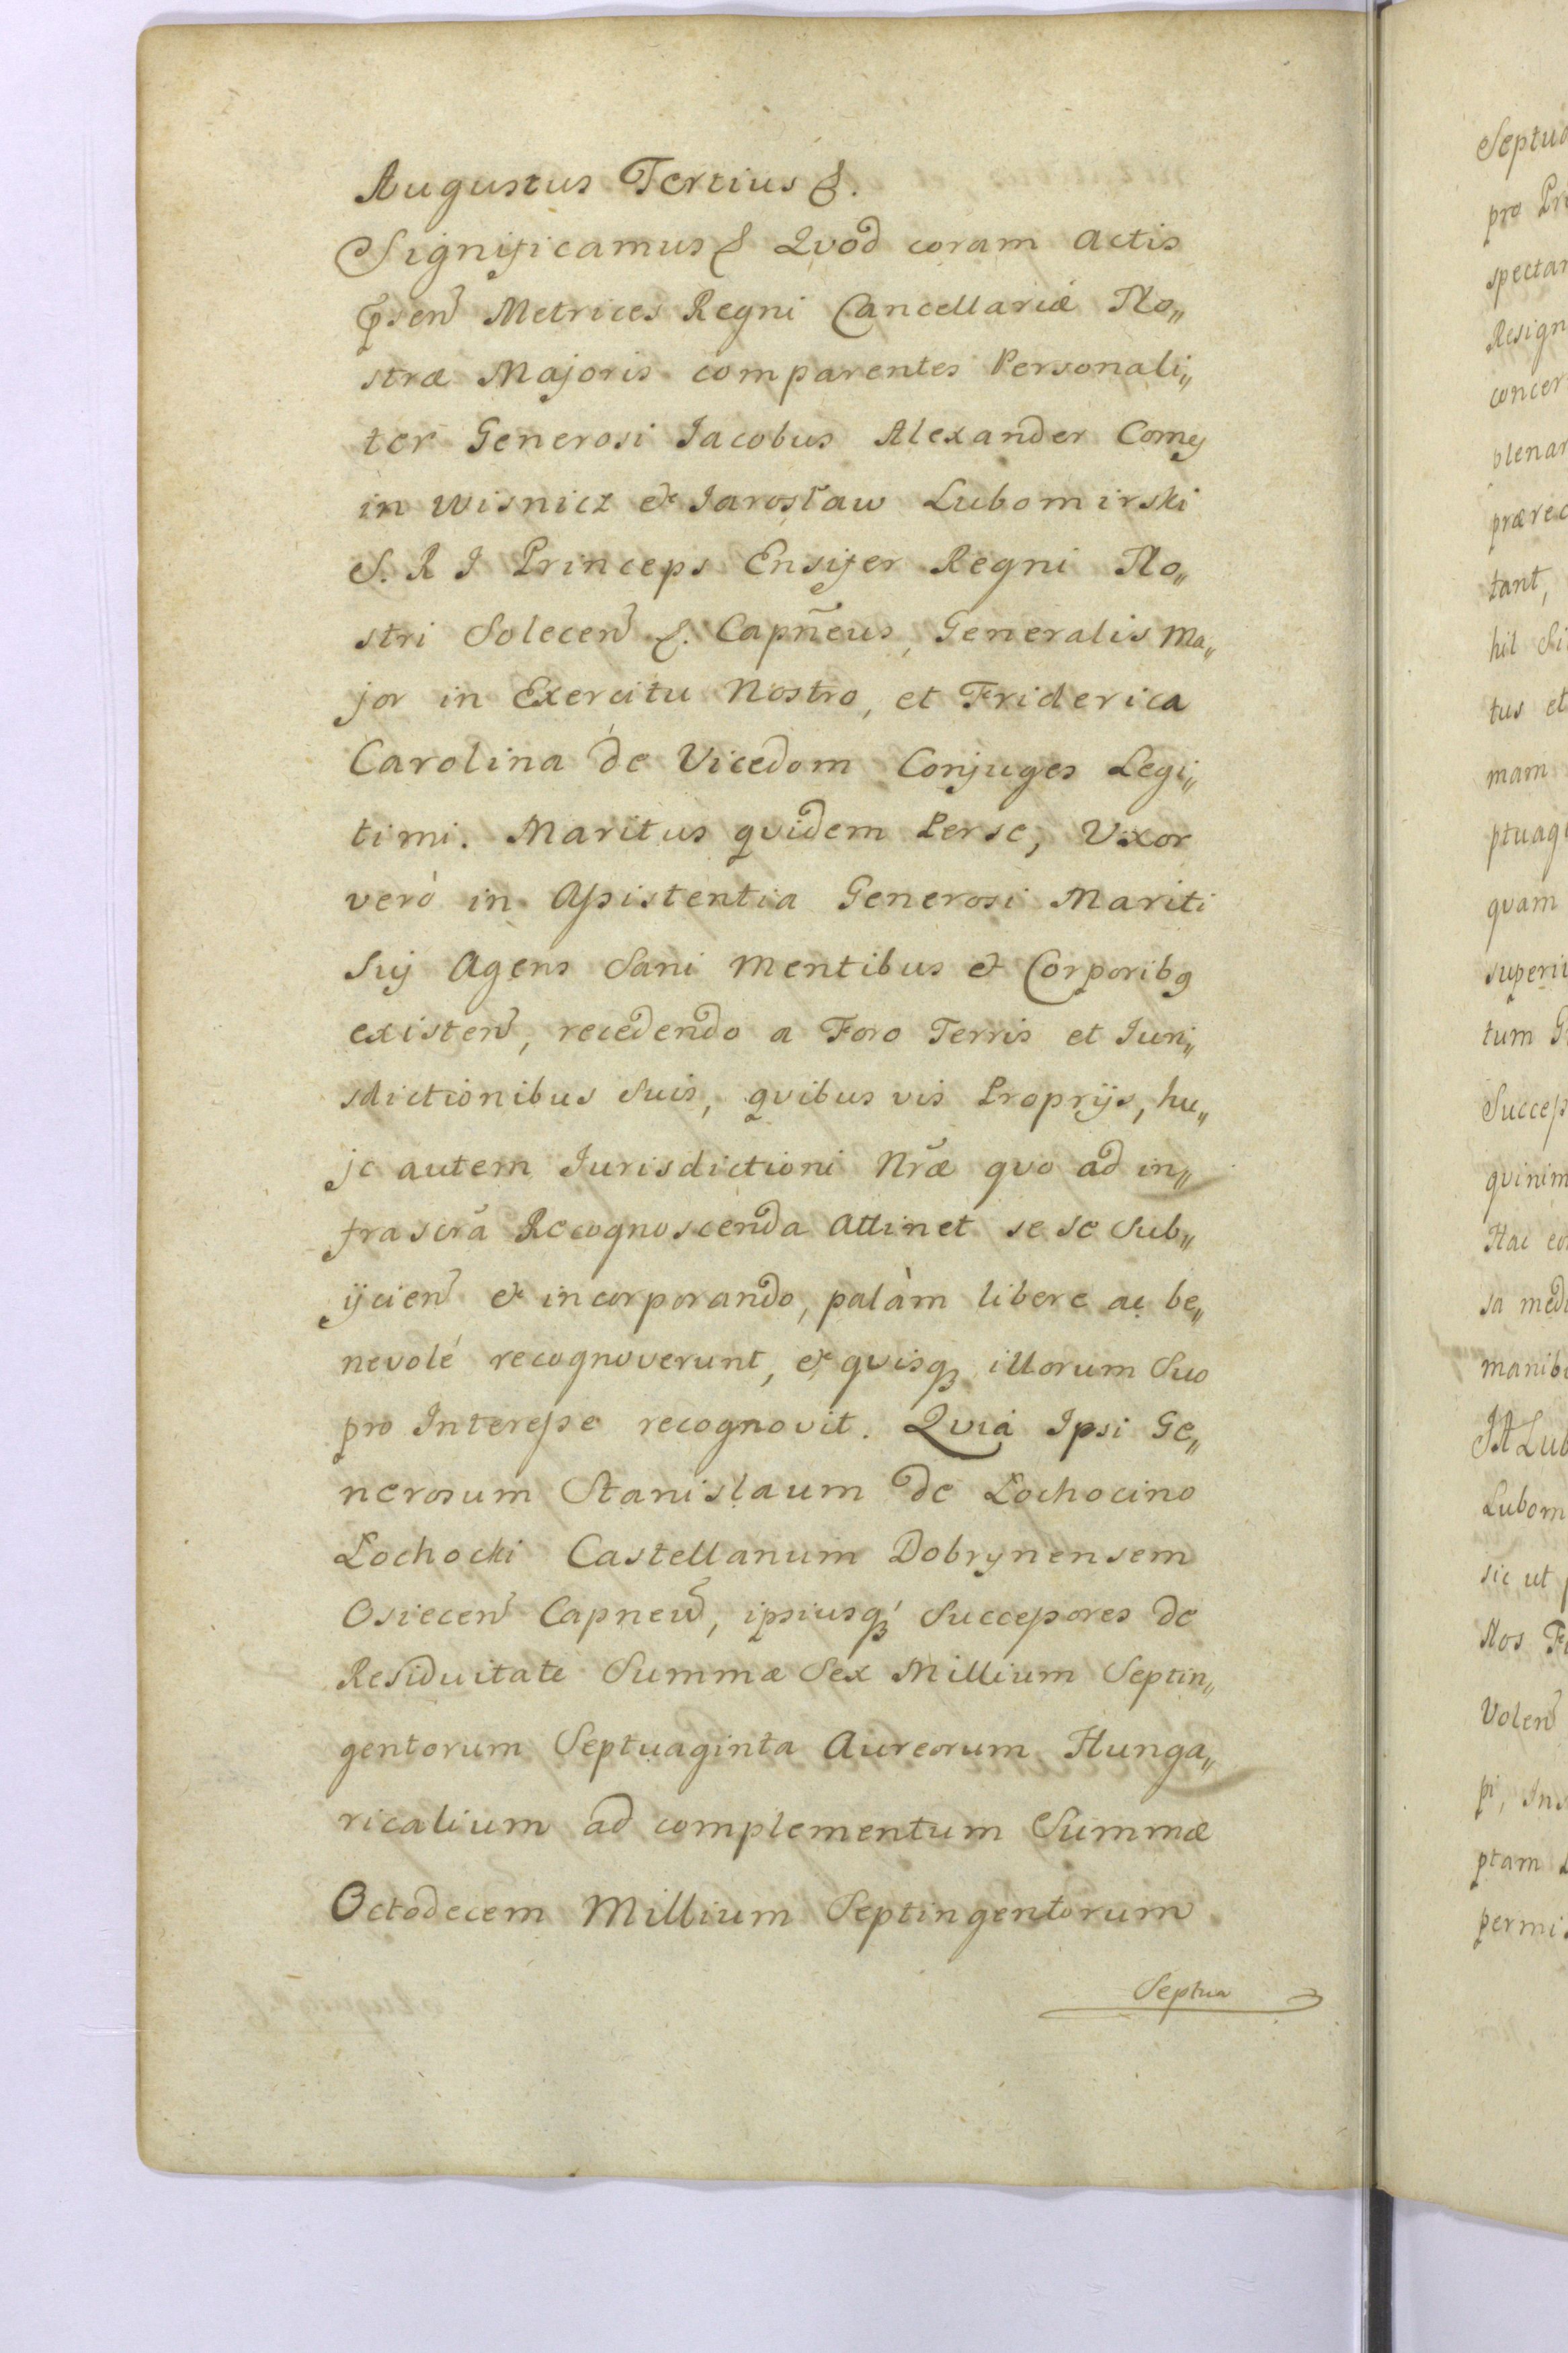 Augustus Tertius &.
Significamus & Qvod coram Actis
Præsen Metrices Regni Cancellariæ No„
stræ Majoris comparentes Personali„
ter Generosi Iacobus Alexander Comes
in Wisnicz et Iarosław Lubomirski
S. R I Princeps Ensifer Regni No„
stri Solecen &. Capñeus, Generalis Ma„
jor in Exercitu Nostro, et Friderica
Carolina de Vicedom Conjuges Legi„
timi. Maritus qvidem Per se, Uxor
verò in Assistentia Generosi Mariti
Sui Agens Sani Mentibus et Corporibq
existen, recedendo a Foro Terris et Iuri„
sdictionibus Suis, qvibus vis Proprijs, hu„
jc autem Iurisdictioni Nr̃æ qvo ad in„
frascr̃a Recognoscenda Attinet se se Sub„
ijcien et incorporando, palàm libere ac be„
nevolé recognoverunt, et qvisq illorum Suo
pro Interesse recognovit. Qvia Ipsi Ge„
nerosum Stanislaum de Łochocino
Łochocki Castellanum Dobrynensem
Osiecen Capneū, ipsiusq Successores de
Residuitate Summæ Sex Millium Septin„
gentorum Septuaginta Aureorum Hunga„
ricalium ad complementum Summæ
Octodecem Millium Septingentorum
Septua
Septua
pro
spectan
Resign
concer
plenar
prærec
tant,
hil Si
tus et
mam
ptuag
qvam
superi
tum
Success
qvinim
Hac
sa medi
manib
JA Lub
Lubom
sic ut
Nos
Volen
pi, Ins
ptam
permi